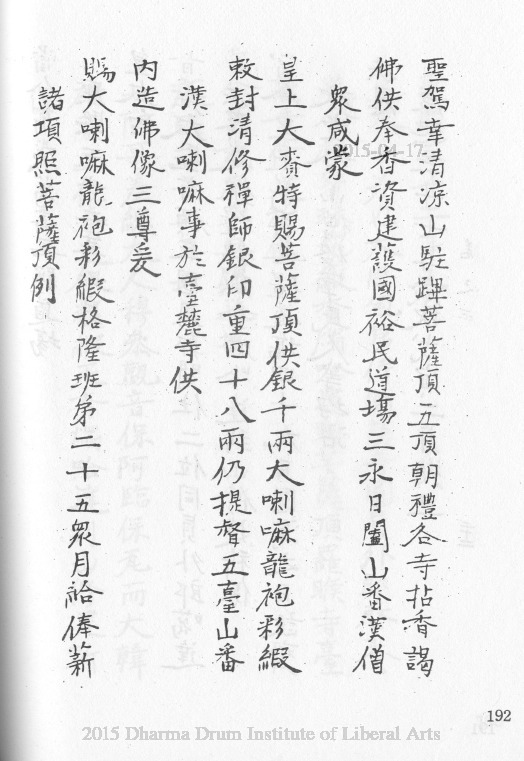 聖駕幸清凉山駐蹕菩薩頂五頂朝禮各寺拈香謁
佛供奉香資建護國裕民道場三永日闔山番漢僧
衆咸蒙
皇上大賚特賜菩薩頂供銀千兩大喇嘛龍袍彩緞
敕封清修禪師銀印重四十八兩仍提督五臺山番
漢大喇嘛事於臺麓寺供
內造佛像三尊爰
賜大喇嘛龍袍彩緞格隆班第二十五衆月給俸薪
諸項照菩薩頂例
192
2015 Dharma Drum Institute of Liberal Arts